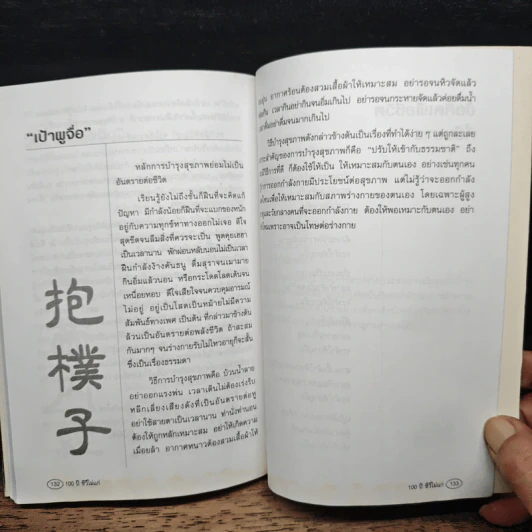 "เป้าพูจื่อ"
หลักการบำรุงสุขภาพย่อมไม่เป็น
อันตรายต่อชีวิต
เรียนรู้ยังไม่ถึงขั้นก็ฝืนที่จะคิดแก้
ปัญหา มีกำลังน้อยก็ฝืนที่จะแบกของหนัก
อยู่กับความทุกข์หาทางออกไม่เจอ ดีใจ
สุดขีดจนลืมสิ่งที่ควรจะเป็น พูดคุยเฮฮา
เป็นเวลานาน พักผ่อนหลับนอนไม่เป็นเวลา
ฝืนกำลังง้างคันธนู ดื่มสุราจนเมามาย
กินอิ่มแล้วนอน หรือกระโดดโลดเต้นจน
เหนื่อยหอบ ดีใจเสียใจจนควบคุมอารมณ์
ไม่อยู่ อยู่เป็นโสดเป็นหม้ายไม่มีความ
สัมพันธ์ทางเพศ เป็นต้น ที่กล่าวมาข้างต้น
ล้วนเป็นอันตรายต่อพลังชีวิต ถ้าสะสม
กันมากๆ จนร่างกายรับไม่ไหวอายุก็จะสั้น
ซึ่งเป็นเรื่องธรรมดา
วิธีการบำรุงสุขภาพคือ บ้วนน้ำลาย
อย่าออกแรงพ่น เวลาเดินไม่ต้องเร่งรีบ
หลีกเลี่ยงเสียงดังที่เป็นอันตรายต่อหู
อย่าใช้สายตาเป็นเวลานาน ท่านั่งท่านอน
ต้องให้ถูกหลักเหมาะสม อย่าให้เกิดความ
เมื่อยล้า อากาศหนาวต้องสวมเสื้อผ้าให้
抱
樸
子
152 100 ปี ชีวีไม่แก่
อากาศร้อนต้องสวมเสื้อผ้าให้เหมาะสม อย่ารอจนหิวจัดแล้ว
เวลากินอย่ากินจนอิ่มเกินไป อย่ารอจนกระหายจัดแล้วค่อยดื่มน้ำ
อย่าดื่มจนมากเกินไป
วิธีบำรุงสุขภาพดังกล่าวข้างต้นเป็นเรื่องที่ทำได้ง่าย ๆ แต่ถูกละเลย
สำคัญของการบำรุงสุขภาพก็คือ "ปรับให้เข้ากับธรรมชาติ" ถึง
มีวิธีการที่ดี ก็ต้องใช้ให้เป็น ให้เหมาะสมกับตนเอง อย่างเช่นทุกคน
การออกกำลังกายมีประโยชน์ต่อสุขภาพ แต่ไม่รู้ว่าจะออกกำลัง
เพื่อให้เหมาะสมกับสภาพร่างกายของตนเอง โดยเฉพาะผู้สูง
และวัยกลางคนที่จะออกกำลังกาย ต้องให้พอเหมาะกับตนเอง อย่า
เพราะอาจเป็นโทษต่อร่างกาย
100 ปี ชีวีไม่แก่ 153